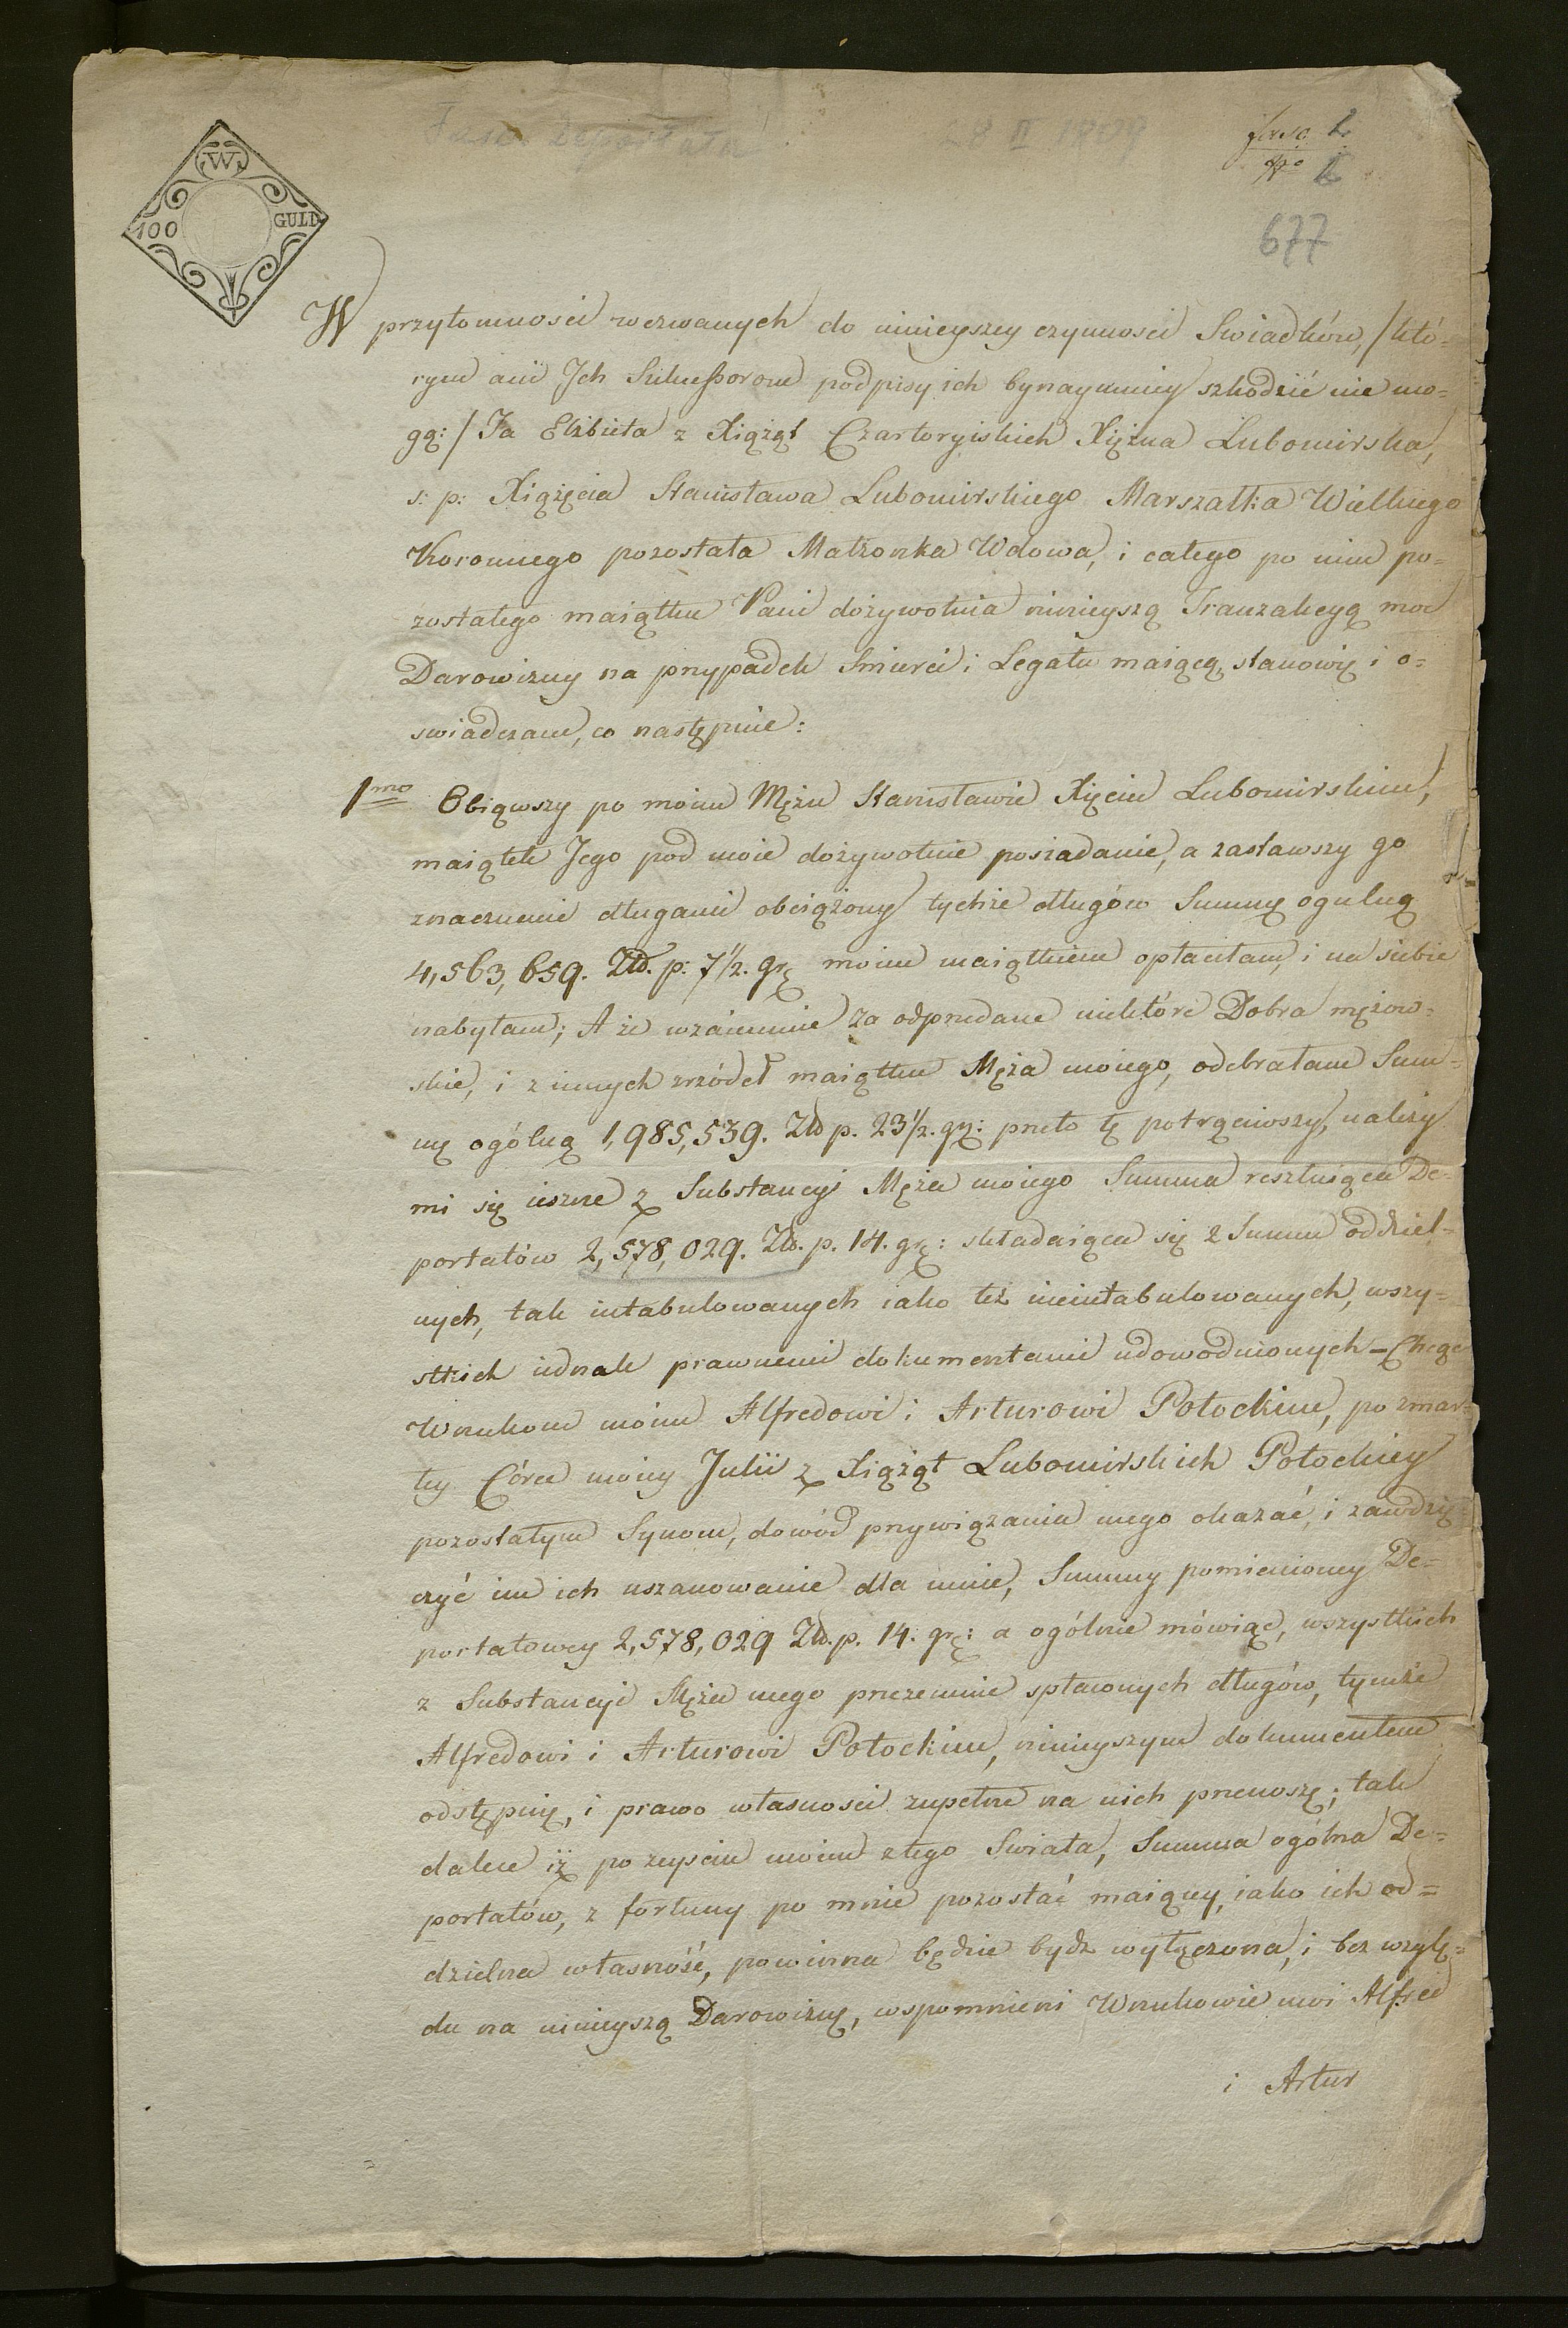 28 II 1809
W
100 GULD
677
W przytomnosci wezwanych do ninieyszey czynnosci Swiadków, /któ-
rym ani Ich Sukceßorom podpisy ich bynaymniey szkodzić nie mo-
gą:/ Ja Elżbieta z Xiążąt Czartoryiskich Xiężna Lubomirska,
s: p: Xiążęcia Stanisława Lubomirskiego Marszałka Wielkiego
Koronnego pozostała Małżonka Wdowa, i całego po nim po=
zostałego maiątku Pani dożywotnia ninieyszą Tranzakcyą moc
Darowizny na przypadek Smierci i Legatu maiącą, stanowię i o=
swiadczam, co następuie:
1mo Obiąwszy po moim Mężu Stanisławie Xięciu Lubomirskim,
maiątek Jego pod moie dożywotnie posiadanie, a zastawszy go
znacznemi długami obciążony tychże długów Summę ogulną
4,563,659. Zł. p: 7 1/2. grę moim maiątkiem opłaciłam, i na siebie
nabyłam; A że wzaiemnie za odprzedane niektóre Dobra mężow=
skie, i z innych zrzódeł maiątku Męża moiego, odebrałam Sum=
mę ogólną 1,985,539. Zł p. 23 1/2. grę: przeto tę potrąciwszy, należy
mi się ieszcze z Substancyi Męża moiego Summa resztuiąca De-
portatów 2,578,029. Zł. p. 14. grę: składaiąca się z Summ oddziel-
nych, tak intabulowanych iako też nieintabulowanych, wszy=
stkich iednak prawnemi dokumentami udowodnionych – Chcąc
Wnukom moim Alfredowi i Arturowi Potockim, po zmar=
łey Córce moiey Julii z Xiążąt Lubomirskich Potockiey
pozostałym Synom, dowód przywiązania mego okazać, i zawdzię=
czyć im ich uszanowanie dla mnie, Summy pomienioney De=
portatowey 2,578,029 Zł. p. 14. grę: a ogólnie mówiąc, wszystkich
z Substancyi Męża mego przezemnie spłaconych długów, tymże
Alfredowi i Arturowi Potockim, ninieyszym dokumentem
odstępuię, i prawo własnosci zupełne na nich przenoszę; tak
dalece iż po zeysciu moim z tego Swiata, Summa ogólna De=
portatów, z fortuny po mnie pozostać maiącey, iako ich od=
dzielna własność, powinna będzie bydź wyłączona, i bez wzglę=
du na ninieyszą Darowiznę, wspomnieni Wnukowie moi Alfred
i Artur